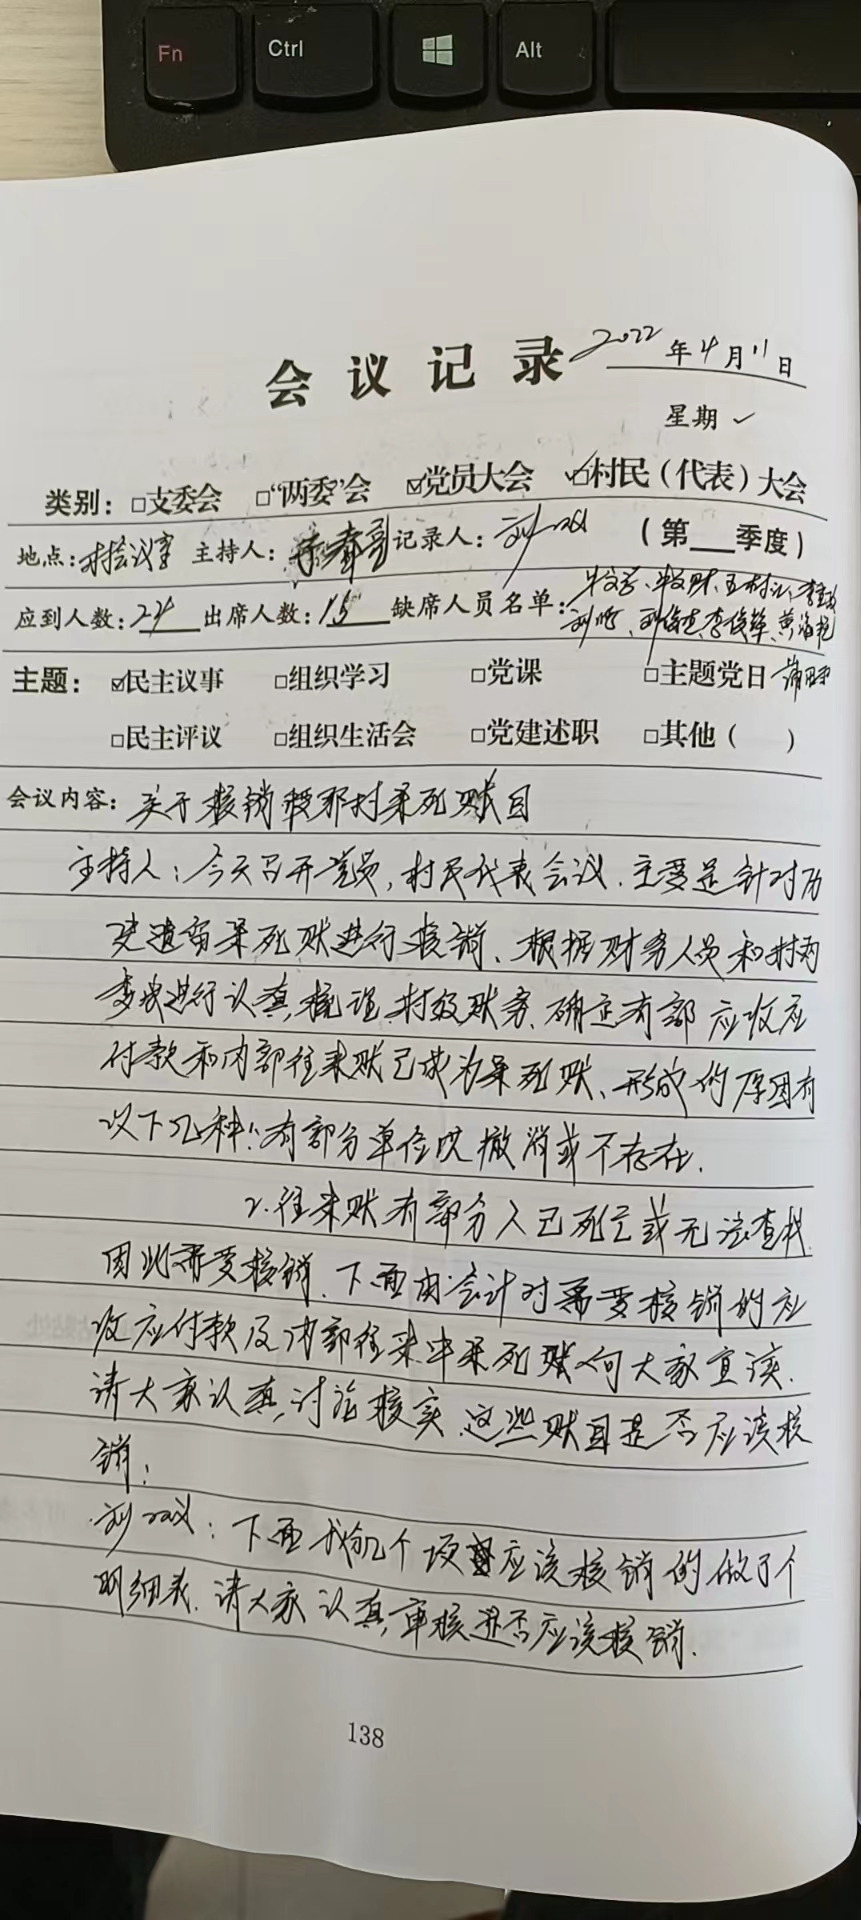 Fn Ctrl Alt
会议记录 2022年4月11日
星期
类别：□支委会 □“两委”会 ☑党员大会 ☑村民（代表）大会
地点：村会议室 主持人： 记录人：刘 （第 季度）
应到人数：24 出席人数：15 缺席人员名单：
主题：☑民主议事 □组织学习 □党课 □主题党日
□民主评议 □组织生活会 □党建述职 □其他（ ）
会议内容：关于核销 村呆死账目
主持人：今天召开党员，村民代表会议．主要是针对历
史遗留呆死账进行核销、根据财务人员和村两
委块进行认真梳理村级账务、确定有部应收应
付款和内部往来账已成为呆死账、形成的原因有
以下几种：1.有部分单位以撤消或不存在．
2.往来账有部分人已死亡或无法查找
因此需要核销．下面由会计对需要核销的应
收应付款及内部往来中呆死账向大家宣读．
请大家认真讨论核实．这些账目是否应该核
销；
刘 ：下面我们几个项目应该核销的做了个
明细表．请大家认真审核是否应该核销．
138